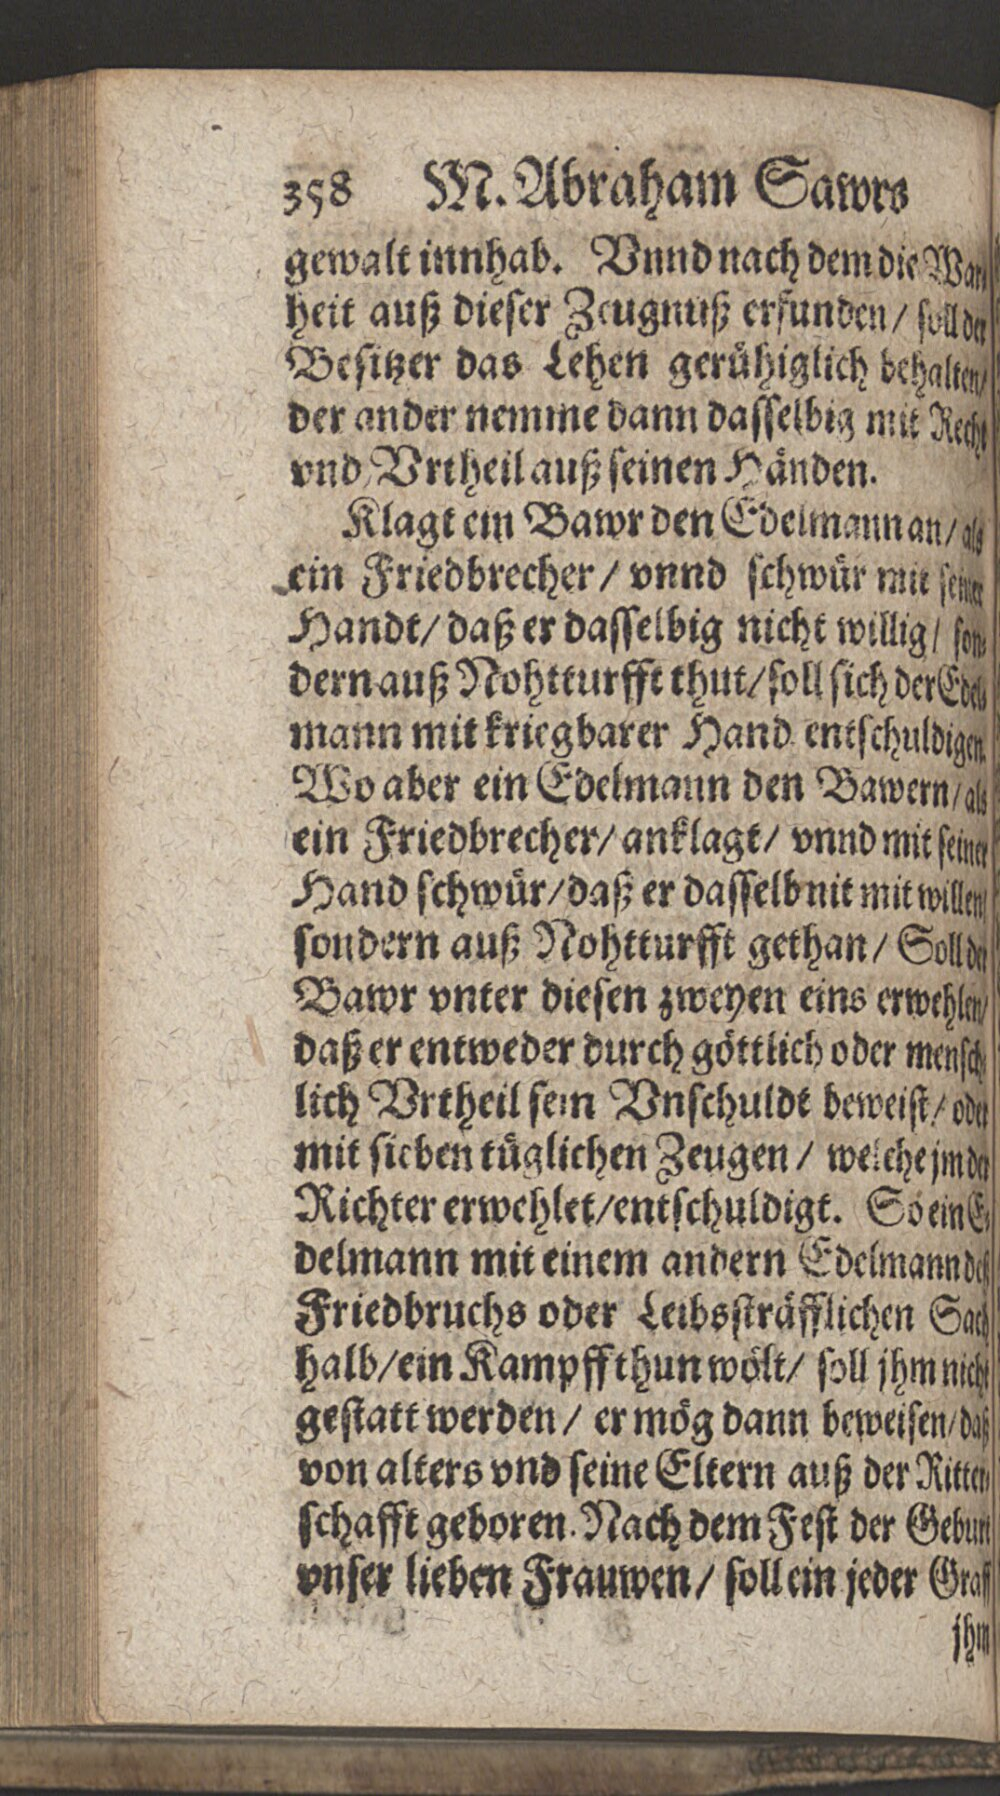 358 M. Abraham Sawrs
gewalt innhab. Vnnd nach dem die War-
heit auß dieser Zeugnuß erfunden/ soll der
Besitzer das Lehen gerühiglich behalten/
der ander nemme dann dasselbig mit Recht
vnd Vrtheil auß seinen Händen.
Klagt ein Bawr den Edelmann an/ als
ein Friedbrecher/ vnnd schwür mit seiner
Handt/ daß er dasselbig nicht willig/ son-
dern auß Nohtturfft thut/ soll sich der Edel-
mann mit kriegbarer Hand entschuldigen.
Wo aber ein Edelmann den Bawern/ als
ein Friedbrecher/ anklagt/ vnnd mit seiner
Hand schwür/ daß er dasselb nit mit willen/
sondern auß Nohtturfft gethan/ Soll der
Bawr vnter diesen zweyen eins erwehlen/
daß er entweder durch göttlich oder mensch-
lich Vrtheil sein Vnschuldt beweist/ oder
mit sieben tüglichen Zeugen/ welche jm der
Richter erwehlet/ entschuldigt. So ein E-
delmann mit einem andern Edelmann deß
Friedbruchs oder Leibssträfflichen Sach
halb/ ein Kampff thun wölt/ soll jhm nicht
gestatt werden/ er mög dann beweisen/ daß
von alters vnd seine Eltern auß der Ritter-
schafft geboren. Nach dem Fest der Geburt
vnser lieben Frauwen/ soll ein jeder Graff
jhm